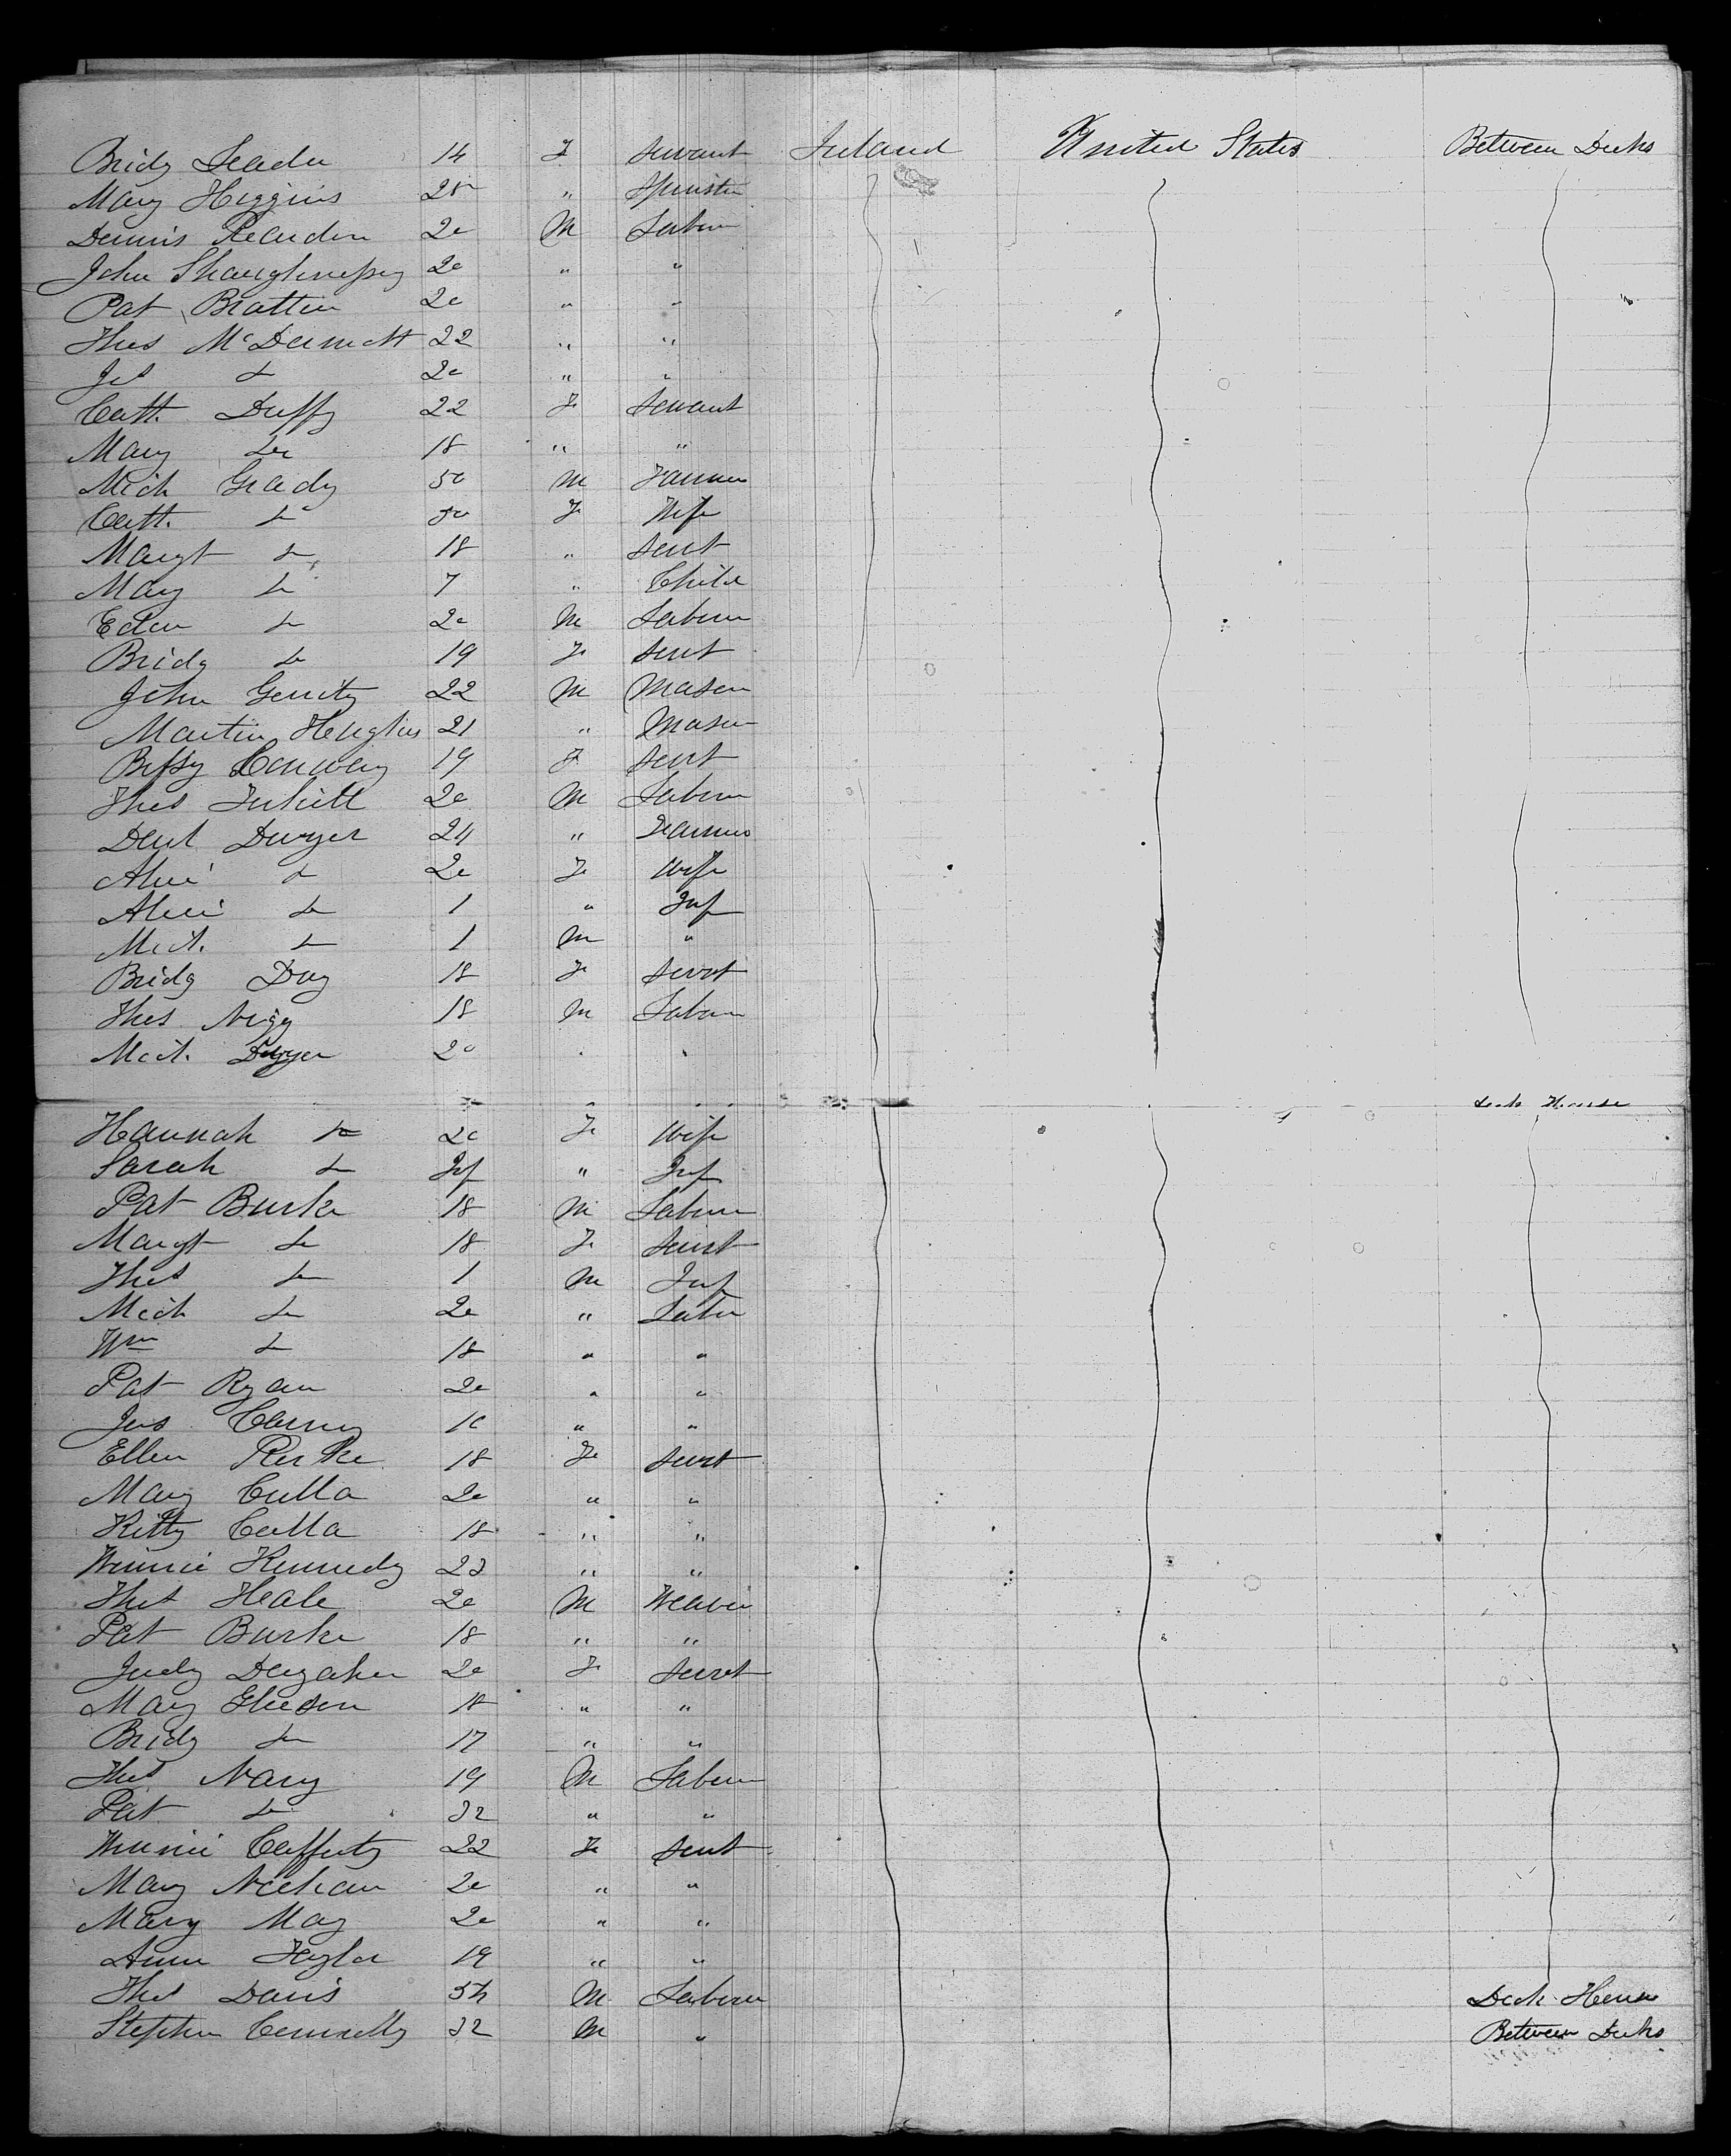 Bridg Leader 14 F Servant Ireland United States Between Decks
Mary Higgins 28 " Spinster
Dennis Reardon 20 M Labour
John Shaughnessy 20 " "
Pat Brattin 20 " "
Thos McDermott 22 " "
Jas do 20 " "
Cath. Duffy 22 F Servant
Mary do 18 " "
Mich Grady 50 M Farmer
Cath. do 50 F Wife
Margt do 18 " Servt
Mary do 7 " Child
Eden do 20 M Labour
Bridg do 19 F Servt
John Gerrity 22 M Mason
Martin Hughes 21 " Mason
Bessy Conway 19 F Servt
Thos 20 M Labour
Danl Dwyer 24 " Farmer
Alice do 20 F Wife
Alice do 1 " Inf
Mich. do 1 M "
Bridg Day 18 F Servt
Thos 18 M Labour
Mich. Dwyer 20 " "
Deck House
Hannah do 20 F Wife
Sarah do Inf " Inf
Pat Burke 18 M Labour
Margt do 18 F Servt
Thos do 1 M Inf
Mich do 20 " Labr
Wm do 18 " "
Pat Ryan 20 " "
Jas 10 " "
Ellen 18 F Servt
Mary Culla 20 " "
Kitty Culla 18 " "
Winnie Kennedy 23 " "
Thos Heale 20 M Weaver
Pat Burke 18 " "
Judy 20 F Servt
Mary Gleeson 18 " "
Bridg do 17 " "
Thos Nary 19 M Labour
Pat do 32 " "
Winnie Cafferty 22 F Servt
Mary Neehan 20 " "
Mary May 20 " "
Anne 19 " "
Thos Davis 54 M Labour Deck House
Stephen Connolly 32 M " Between Decks